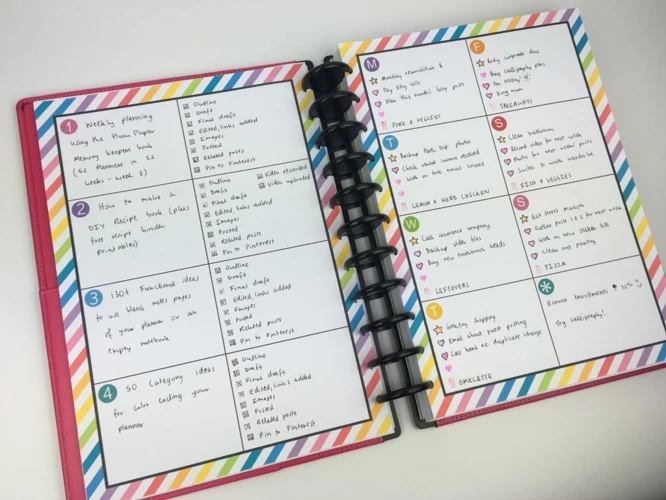 1 Weekly planning
using the Plum Paper
Memory keepers book
(52 Planners in 52
weeks - week 8)
Outline
Draft
Final draft
Edited, links added
Images
Posted
Related posts
Pin to Pinterest
2 How to make a
DIY Recipe book (plus
free recipe binder
printables)
Outline
Draft
Final draft
Edited, links added
Images
Posted
Related posts
Pin to Pinterest
Video recorded
Video uploaded
3 130+ Functional ideas
to use blank notes pages
of your planner or an
empty notebook
Outline
Draft
Final draft
Edited, links added
Images
Posted
Related posts
Pin to Pinterest
4 50 Category ideas
for color coding your
planner
Outline
Draft
Final draft
Edited, links added
Images
Posted
Related posts
Pin to Pinterest
M
Monthly reconciliation &
Pay Etsy bills
Plan this month's blog posts
PORK & VEGGIES
T
Backup photos
Check
Work on free email course
LEMON & HERB CHICKEN
W
Call insurance company
Backup video files
Buy new toothbrush heads
LEFTOVERS
T
Grocery shopping
Email about guest posting
Call bank re: duplicate charge
OMELETTE
F
Buy calligraphy pens
Ring mum
TAKEAWAYS
S
Clean bathroom
Record video for next week
Photos for next weeks' posts
Switch to winter wardrobe
FISH & VEGGIES
S
Eat street markets
Outline posts 1 & 2 for next week
Work on
Clean out pantry
PIZZA
Ecourse enrollments ↑ 10%
Try calligraphy!